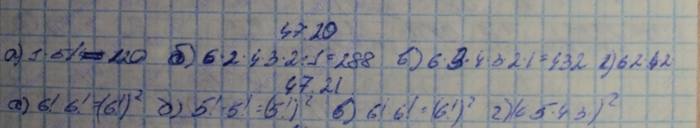 47.20
а) 1·5!=120 б) 6·2·4·3·2·1=288 в) 6·3·4·3 2 1=432 г) 6 2 4 2
47.21
а) 6! 6! =(6!)² б) 5!·5! =(5!)² в) 6! 6! =(6!)² г) (6 5 4 3)²